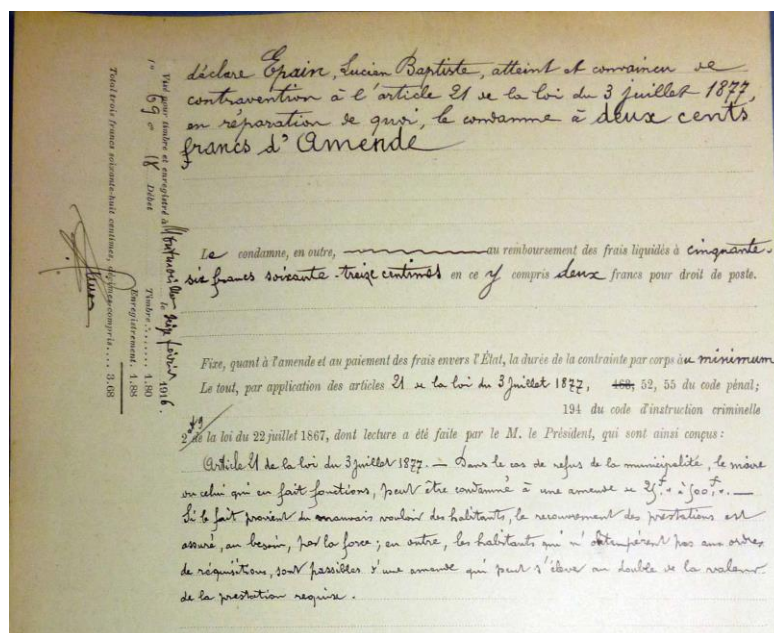 déclare Epain, Lucien Baptiste, atteint et convaincu de
contravention à l'article 21 de la loi du 3 juillet 1877,
en réparation de quoi, le condamne à deux cents
francs d'Amende
Le condamne, en outre, au remboursement des frais liquidés à cinquante-
six francs soixante-treize centimes en ce y compris deux francs pour droit de poste.
Fixe, quant à l'amende et au paiement des frais envers l'État, la durée de la contrainte par corps au minimum
Le tout, par application des articles 21 de la loi du 3 Juillet 1877, 468, 52, 55 du code pénal;
194 du code d'instruction criminelle
2 et 9 de la loi du 22 juillet 1867, dont lecture a été faite par le M. le Président, qui sont ainsi conçus :
Article 21 de la loi du 3 juillet 1877. — Dans le cas de refus de la municipalité, le maire
ou celui qui en fait fonctions, peut être condamné à une amende de 25f. à 500f. —
Si le fait provient du mauvais vouloir des habitants, le recouvrement des prestations est
assuré, au besoin, par la force ; en outre, les habitants qui n'obtempèrent pas aux ordres
de réquisitions, sont passibles d'une amende qui peut s'élever au double de la valeur
de la prestation requise.
Visé pour timbre et enregistré à le février 1916.
69 18 Débet
Timbre...... 1.80
Enregistrement. 1.88
Total trois francs soixante-huit centimes, décimes compris.... 3.68